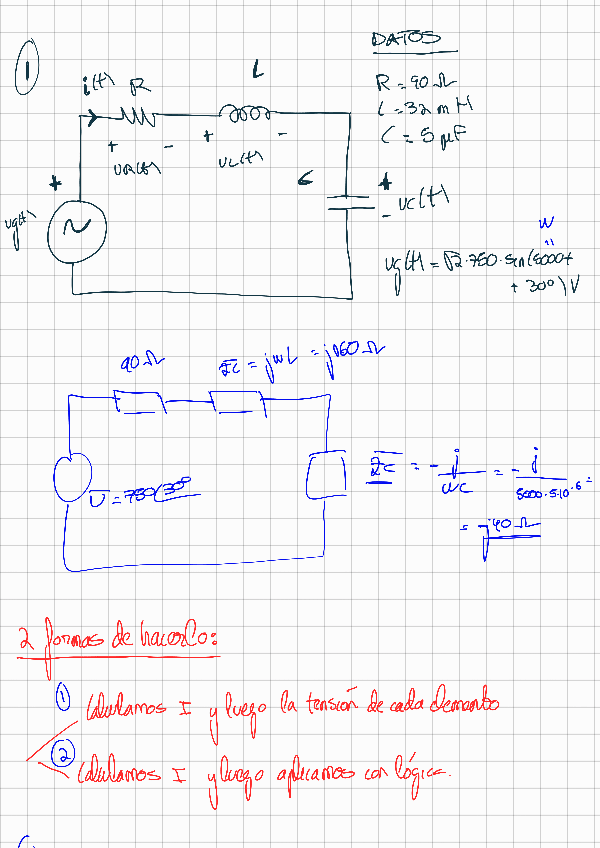 1
DATOS
i(t) R L
R = 90 Ω
L = 32 m H
C = 5 μF
+ - + -
vR(t) vL(t)
C + vc(t) -
+
vg(t) ~
w
"
vg(t) = √2·750·sin(5000t
+ 30º) V
90 Ω Z̄L = jwL = j160 Ω
Ū = 750/30º
Z̄c = - j/wc = - j/5000·5·10⁻⁶ =
= -j40 Ω
2 formas de hacerlo:
① Calculamos I y luego la tensión de cada elemento
② Calculamos I y luego aplicamos con lógica.